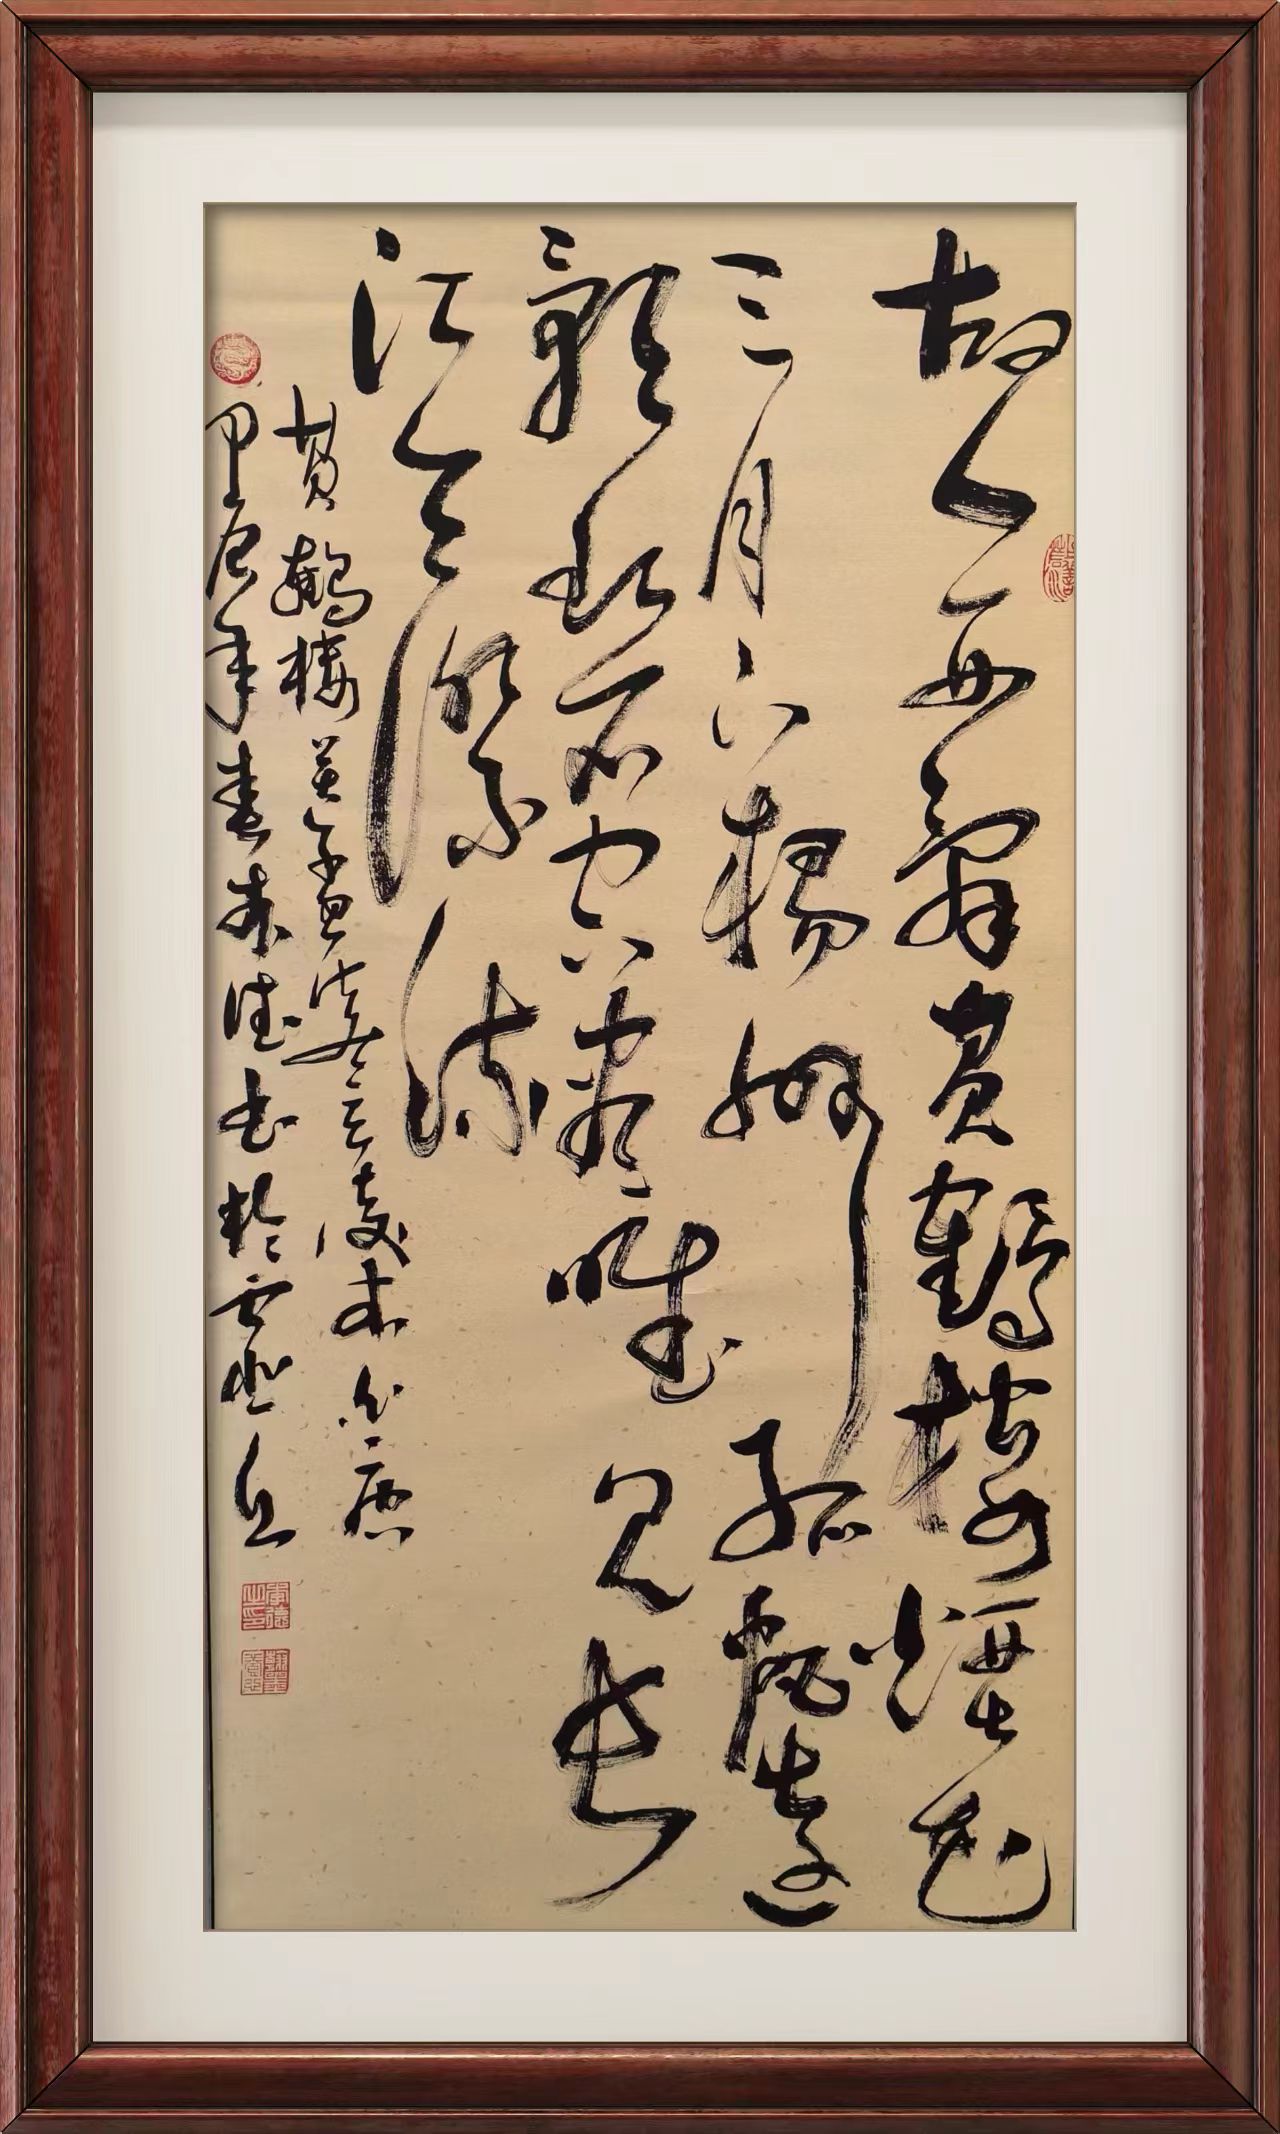 故人西辭黃鶴樓煙花
三月下揚州孤帆遠
影碧空盡唯見長
江天際流
黃鶴樓送孟浩然之廣陵李白
甲辰年春 德書於